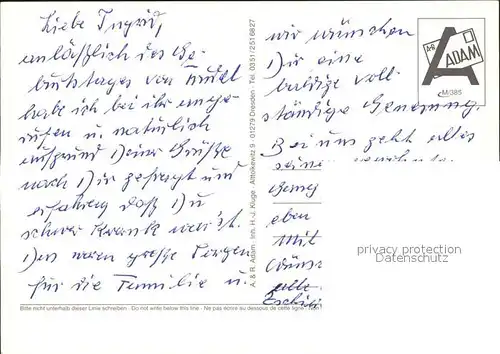 Liebe Ingrid,
anläßlich des Ge-
burtstages von
habe ich bei ihr ange-
rufen u. natürlich
aufgrund Deiner Grüße
nach Dir gefragt und
erfahren daß Du
schwer krank warst.
Das waren große Sorgen
für die Familie u.
wir wünschen
Dir eine
baldige voll-
ständige Genesung.
Bei uns geht alles
seine
eben
Mit
A & R
ADAM
M/085
A. & R. Adam Inh. H.-J. Kluge Altnickern 9 - 01279 Dresden - Tel. 0351/2516827
privacy protection
Datenschutz
Bitte nicht unterhalb dieser Linie schreiben - Do not write below this line - Ne pas écrire au dessous de cette ligne